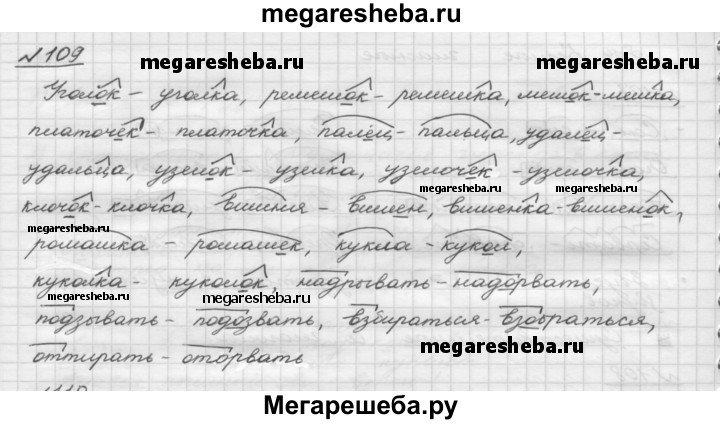 megaresheba.ru
№109
megaresheba.ru megaresheba.ru
Уголок - уголка, ремешок - ремешка, мешок - мешка,
платочек - платочка, палец - пальца, удалец -
удальца, узелок - узелка, узелочек - узелочка,
megaresheba.ru megaresheba.ru
клочок - клочка, вишня - вишен, вишенка - вишенок,
megaresheba.ru
ромашка - ромашек, кукла - кукол,
куколка - куколок, надрывать - надорвать,
megaresheba.ru megaresheba.ru
подзывать - подозвать, взбираться - взобраться,
megaresheba.ru
оттирать - оторвать
Мегарешеба.ру